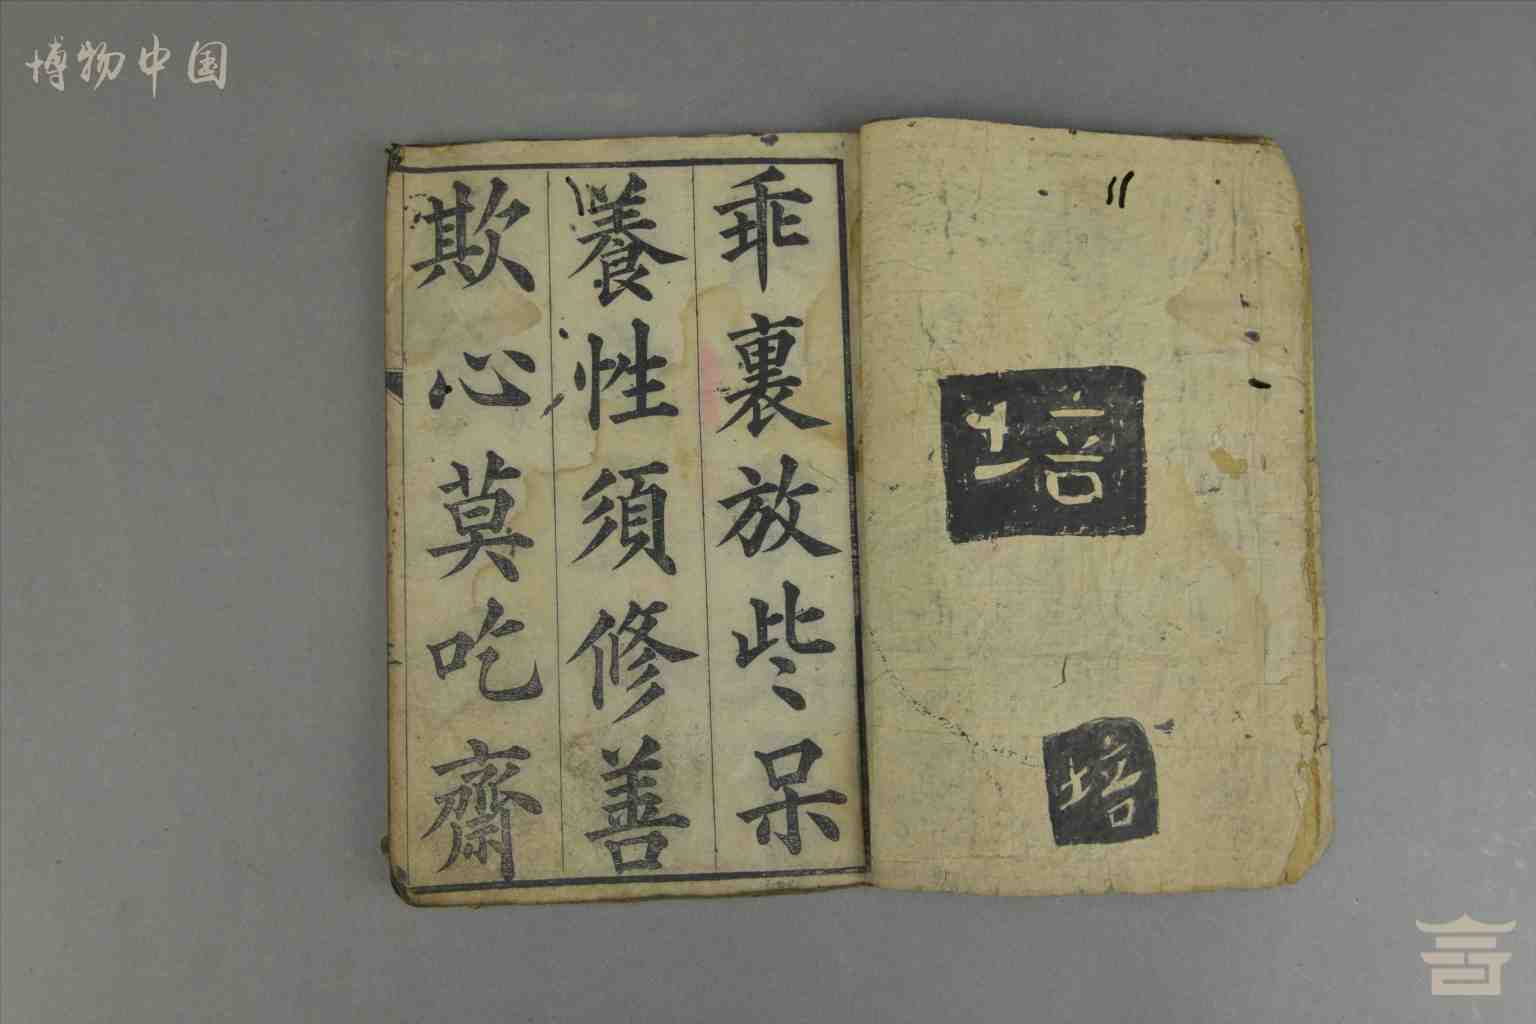 博物中国
培
培
乖裏放些呆
養性須修善
欺心莫吃齋